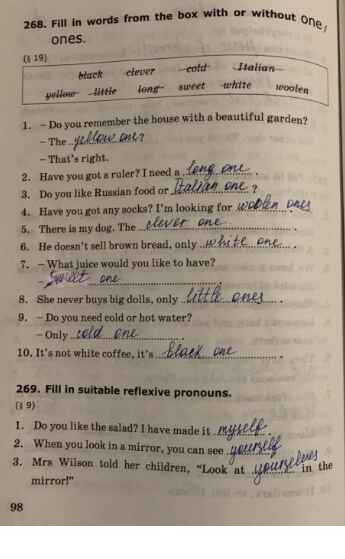 268. Fill in words from the box with or without one,
ones.
(§ 19)
black clever cold Italian
yellow little long sweet white woolen
1. – Do you remember the house with a beautiful garden?
– The yellow one?
– That's right.
2. Have you got a ruler? I need a long one.
3. Do you like Russian food or Italian one?
4. Have you got any socks? I'm looking for woolen ones.
5. There is my dog. The clever one.
6. He doesn't sell brown bread, only white one.
7. – What juice would you like to have?
– Sweet one
8. She never buys big dolls, only little ones.
9. – Do you need cold or hot water?
– Only cold one.
10. It's not white coffee, it's black one.
269. Fill in suitable reflexive pronouns.
(§ 9)
1. Do you like the salad? I have made it myself.
2. When you look in a mirror, you can see yourself.
3. Mrs Wilson told her children, "Look at yourselves in the
mirror!"
98